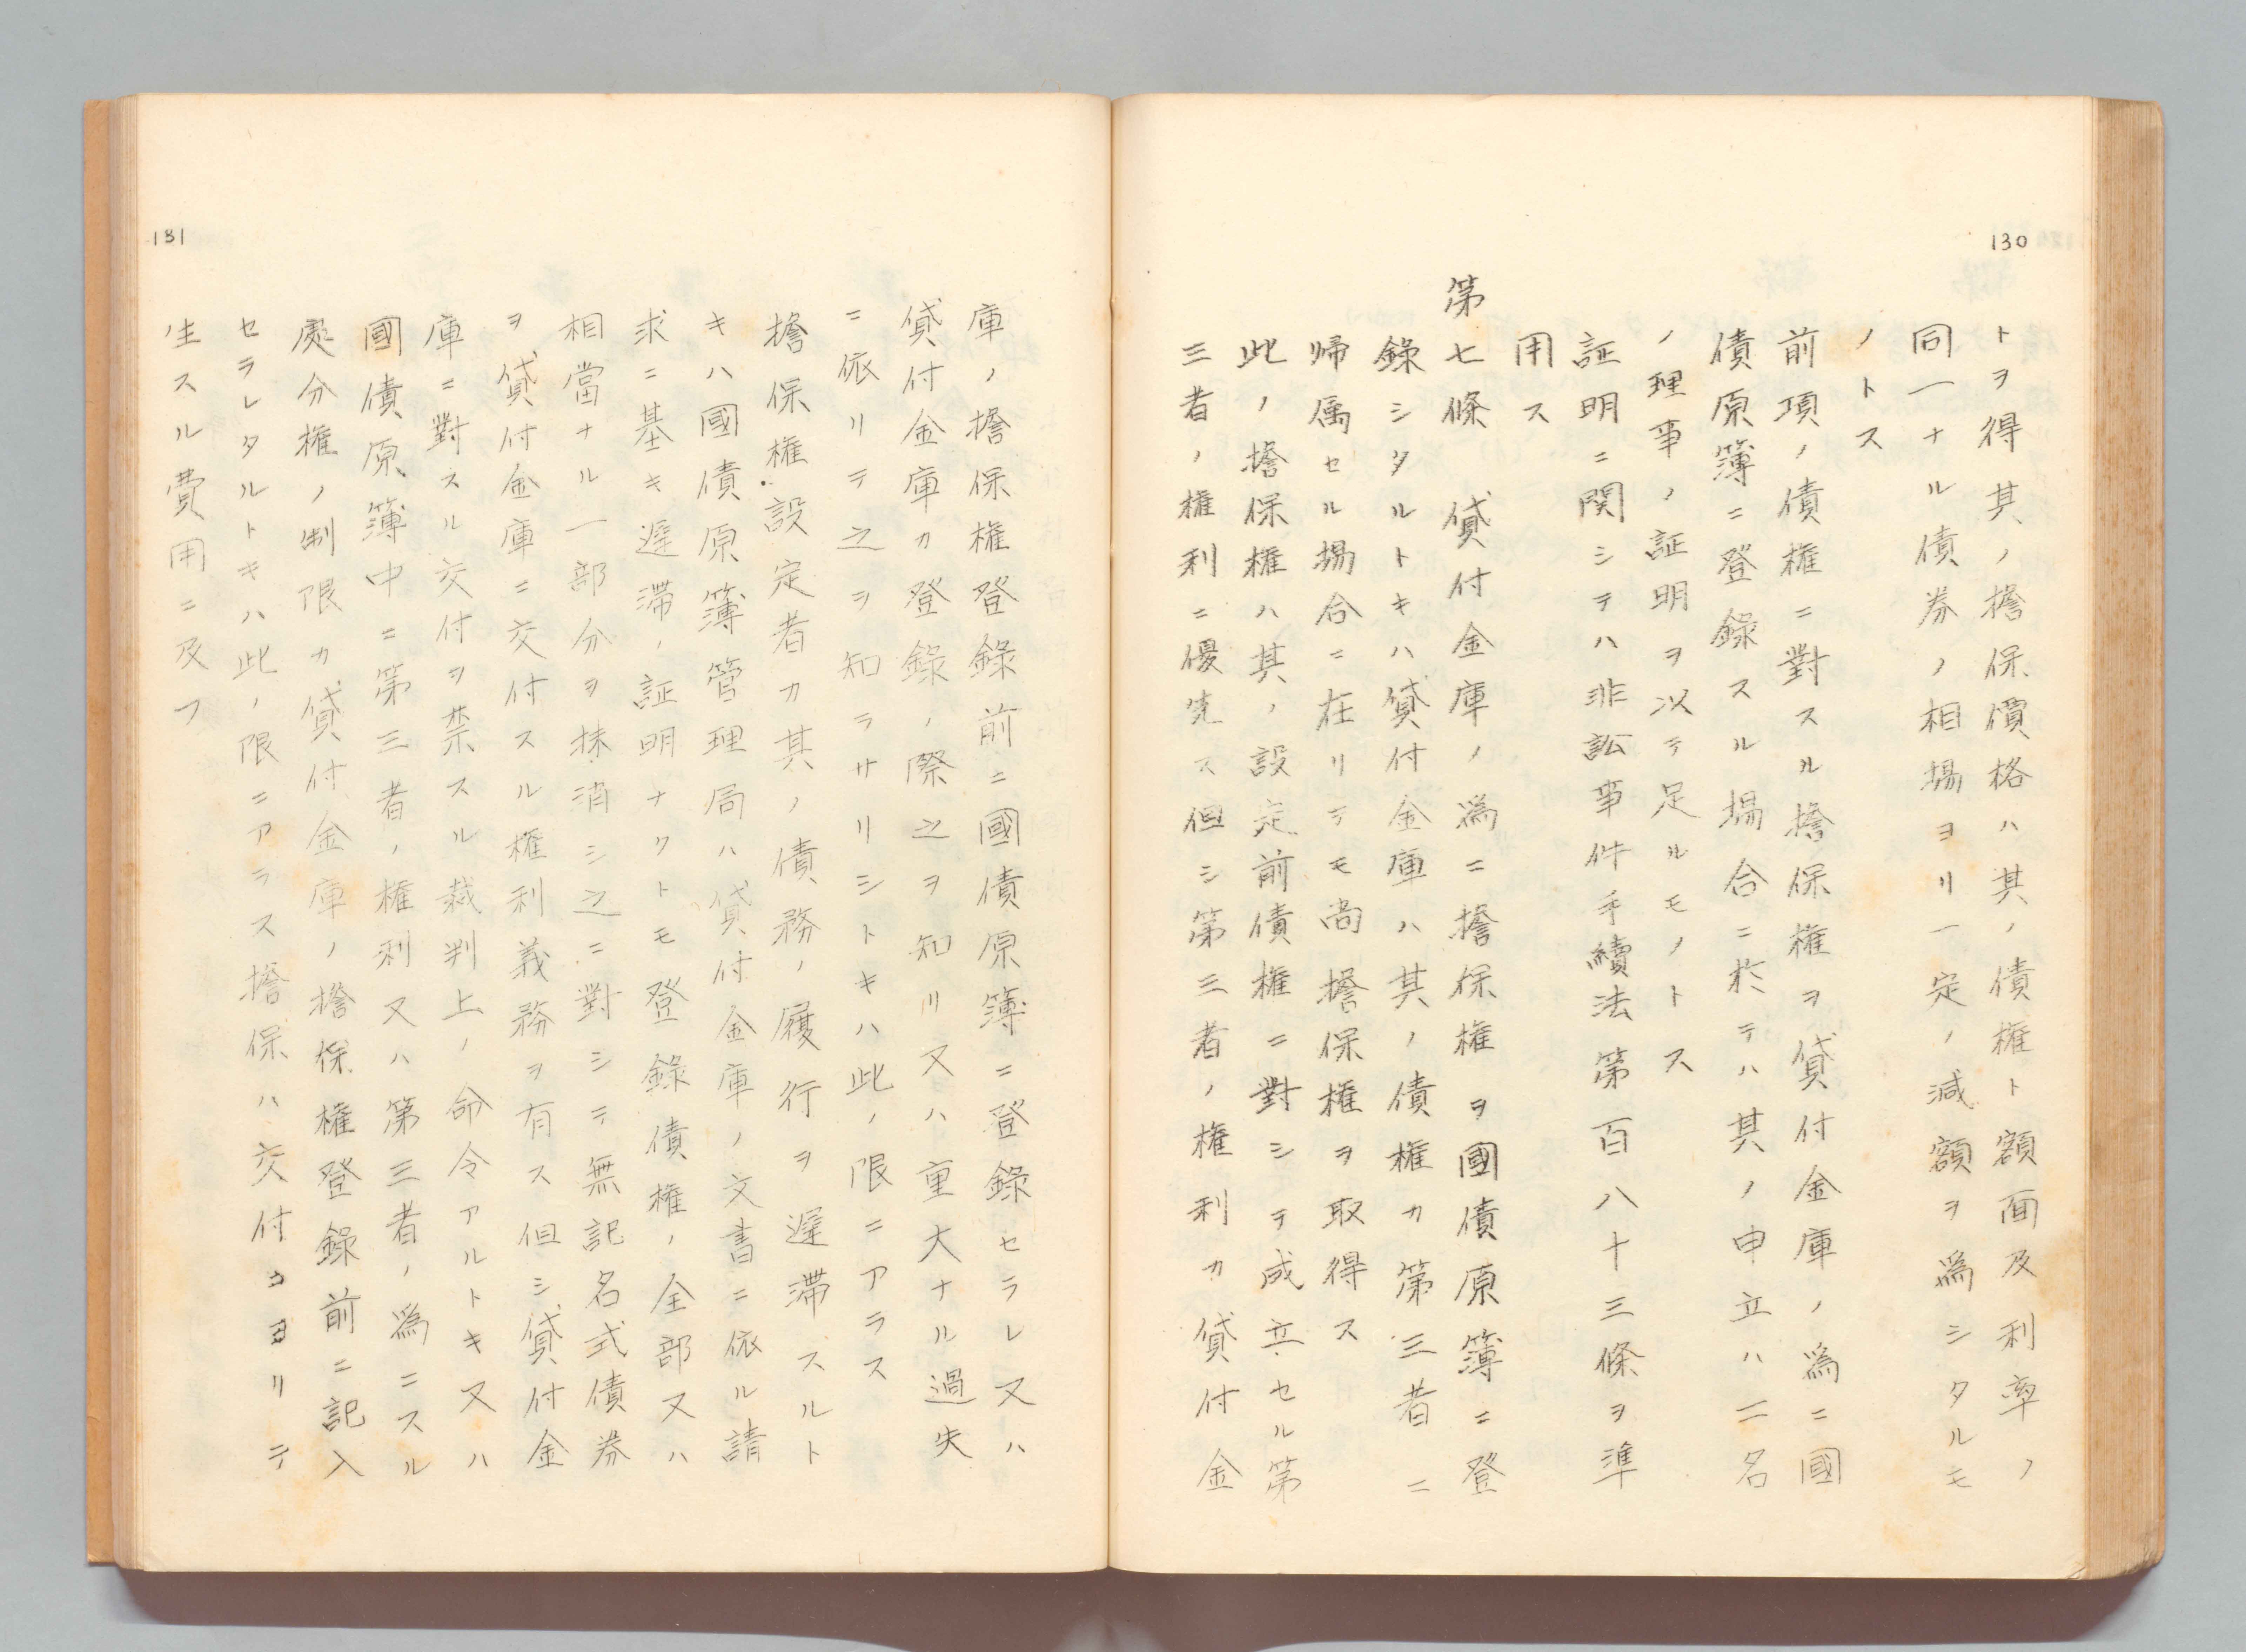 130
トヲ得其ノ擔保價格ハ其ノ債権ト額面及利率ノ
同一ナル債券ノ相場ヨリ一定ノ減額ヲ爲シタルモ
ノトス
前項ノ債権ニ對スル擔保権ヲ貸付金庫ノ爲ニ國
債原簿ニ登錄スル場合ニ於テハ其ノ申立ハ二名
ノ理事ノ証明ヲ以テ足ルモノトス
証明ニ関シテハ非訟事件手續法第百八十三條ヲ準
用ス
第七條 貸付金庫ノ爲ニ擔保権ヲ國債原簿ニ登
錄シタルトキハ貸付金庫ハ其ノ債権カ第三者ニ
帰属セル場合ニ在リテモ尚擔保権ヲ取得ス
此ノ擔保権ハ其ノ設定前債権ニ對シテ成立セル第
三者ノ権利ニ優先ス但シ第三者ノ権利カ貸付金
131
庫ノ擔保権登錄前ニ國債原簿ニ登錄セラレ又ハ
貸付金庫カ登錄ノ際之ヲ知リ又ハ重大ナル過失
ニ依リテ之ヲ知ラサリシトキハ此ノ限ニアラス
擔保権設定者カ其ノ債務ノ履行ヲ遅滞スルト
キハ國債原簿管理局ハ貸付金庫ノ文書ニ依ル請
求ニ基キ遅滞ノ証明ナクトモ登錄債権ノ全部又ハ
相當ナル一部分ヲ抹消シ之ニ對シテ無記名式債券
ヲ貸付金庫ニ交付スル権利義務ヲ有ス但シ貸付金
庫ニ對スル交付ヲ禁スル裁判上ノ命令アルトキ又ハ
國債原簿中ニ第三者ノ権利又ハ第三者ノ爲ニスル
處分権ノ制限カ貸付金庫ノ擔保権登錄前ニ記入
セラレタルトキハ此ノ限ニアラス擔保ハ交付ヨリテ
生スル費用ニ及フ